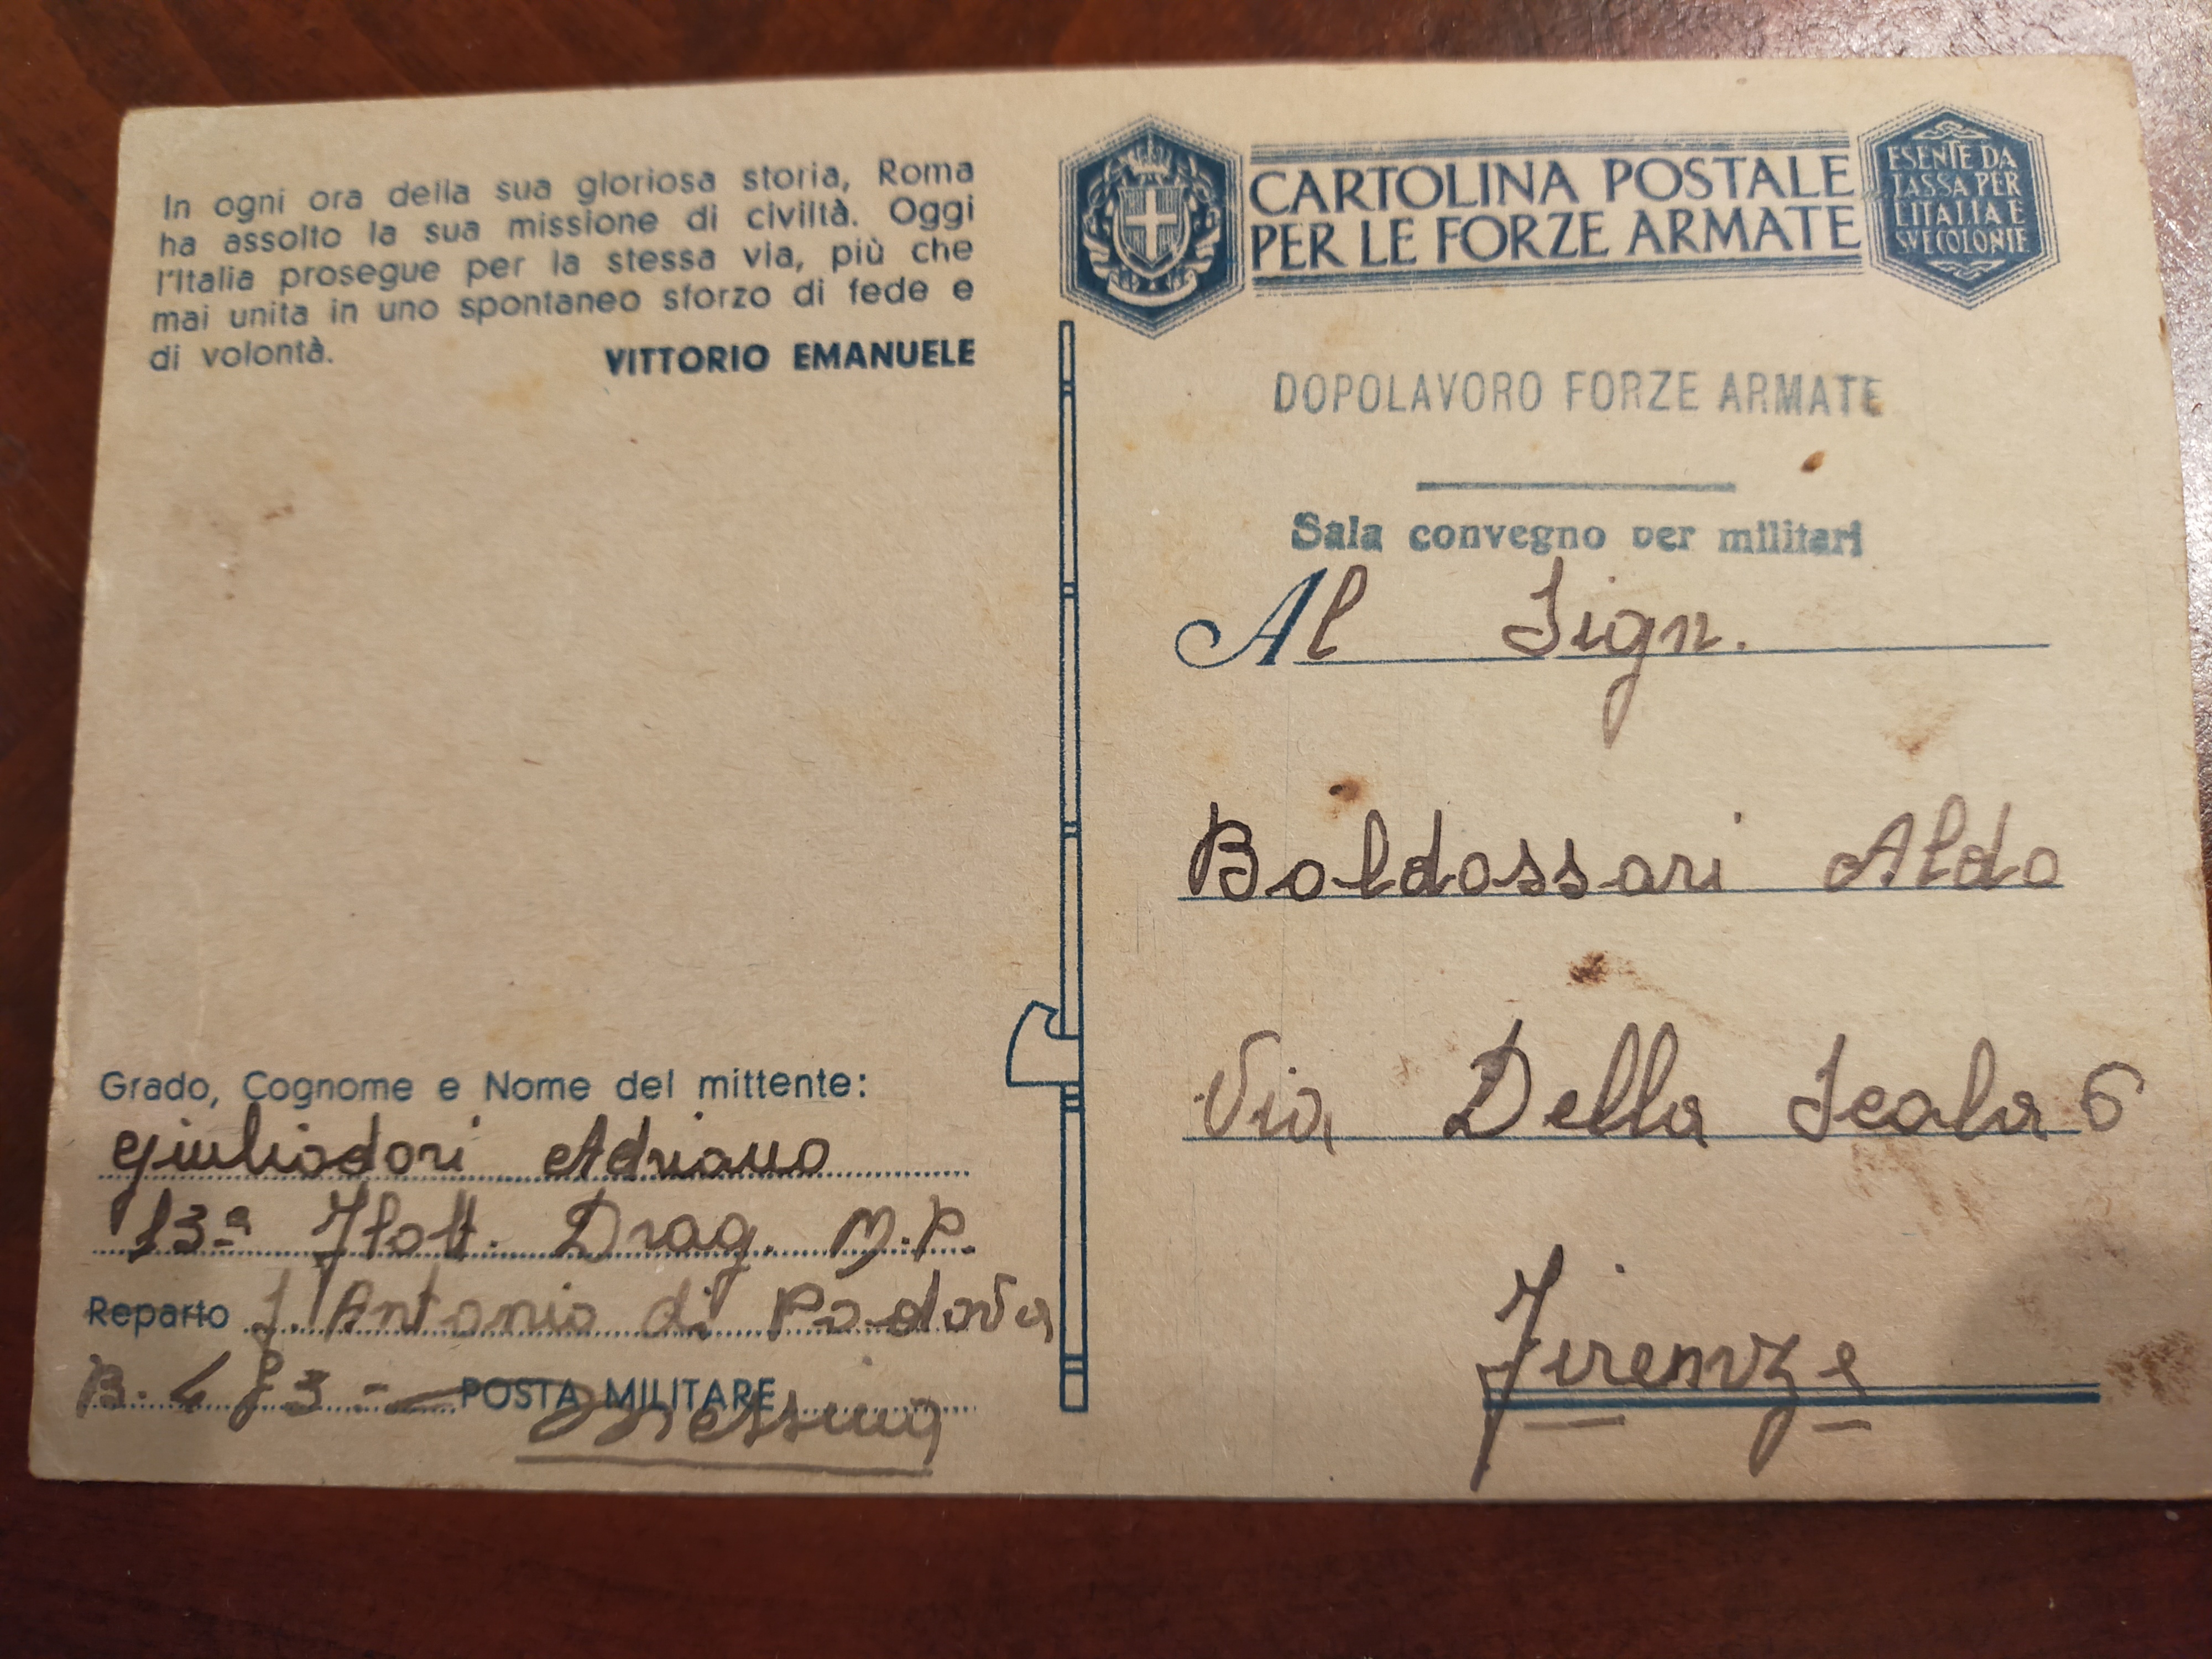 In ogni ora della sua gloriosa storia, Roma
ha assolto la sua missione di civiltà. Oggi
l'Italia prosegue per la stessa via, più che
mai unita in uno spontaneo sforzo di fede e
di volontà.
VITTORIO EMANUELE
Grado, Cognome e Nome del mittente:
Giuliodori Adriano
13ª Flott. Drag. M.P.
Reparto S. Antonio di Padova
B. 483 - POSTA MILITARE
Messina
CARTOLINA POSTALE
PER LE FORZE ARMATE
ESENTE DA
TASSA PER
L'ITALIA E
SUE COLONIE
DOPOLAVORO FORZE ARMATE
Sala convegno per militari
Al Sign.
Baldassari Aldo
Via Della Scala 6
Firenze